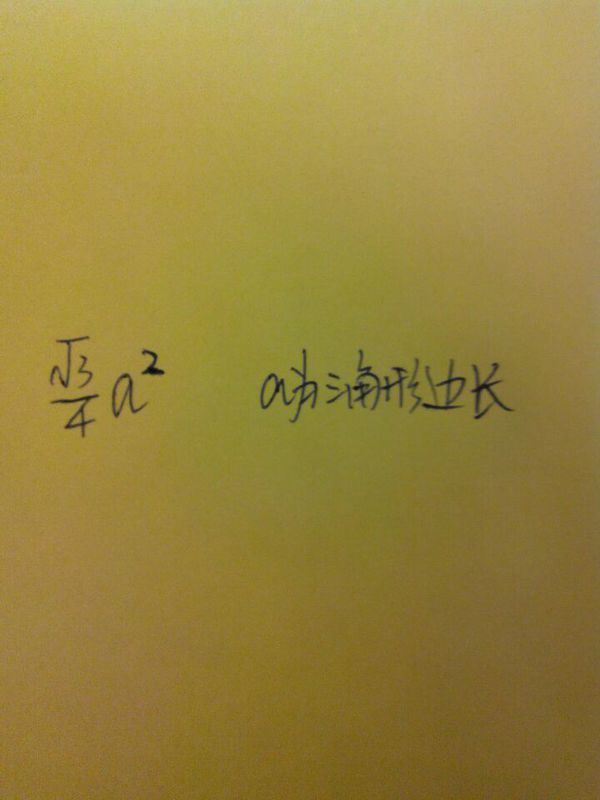 √3/4 a² a为三角形边长